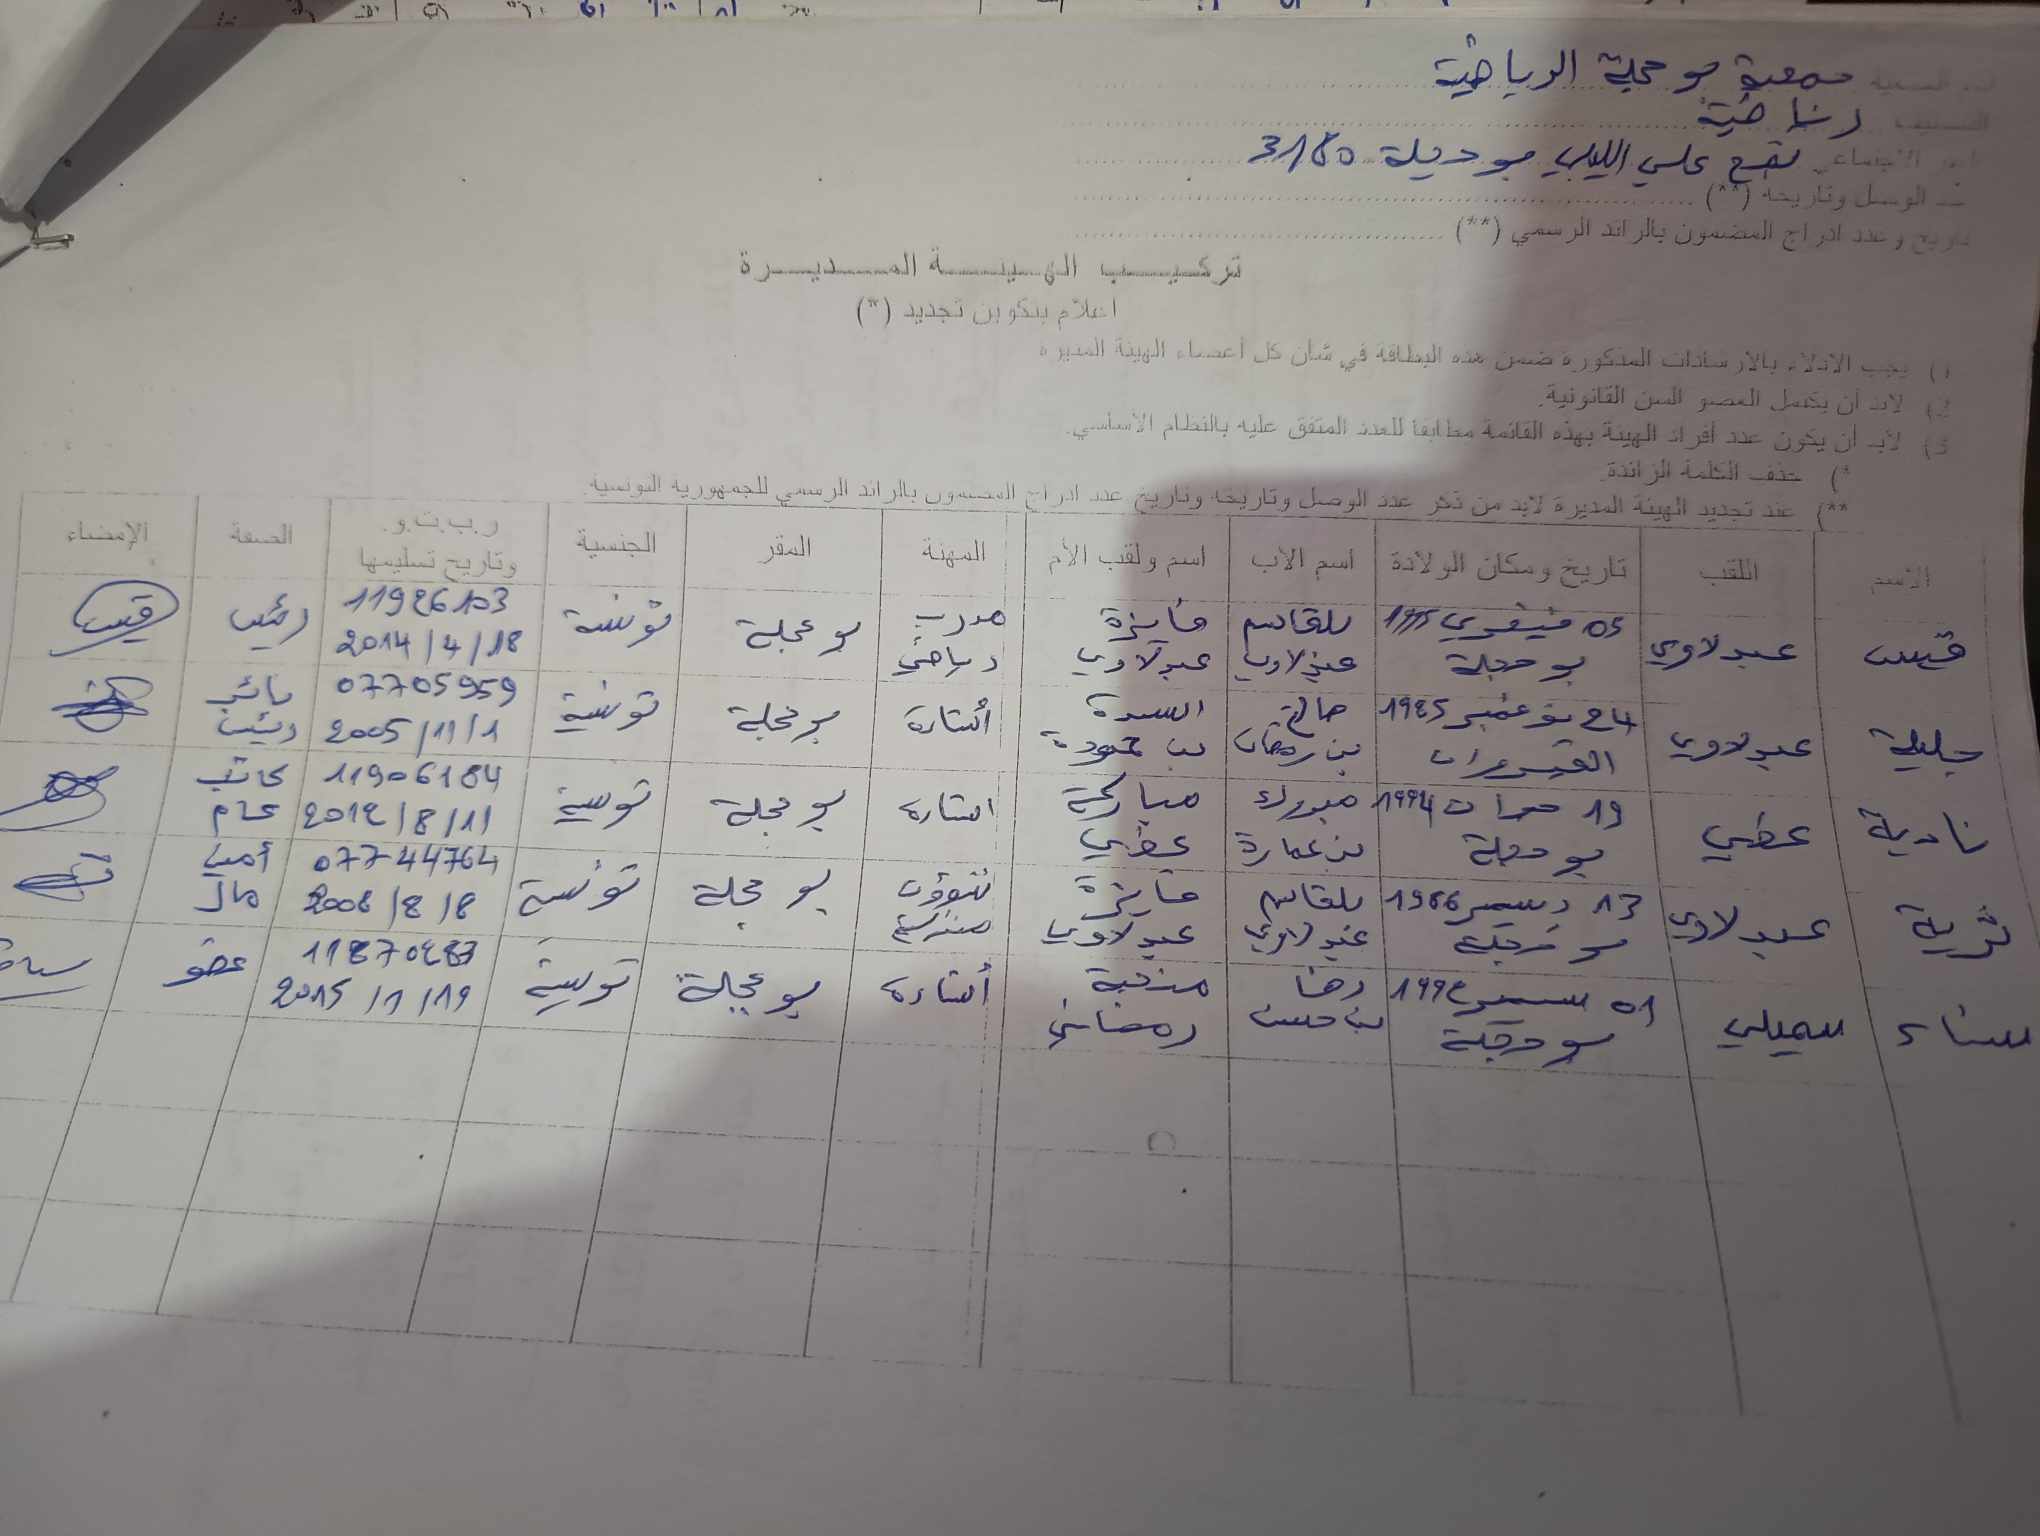 جمعية بوحجلة الرياضية
رياضية
نهج علي الليلي بوحجلة 3180
الوصل وتاريخه (**)
تاريخ وعدد ادراج المضمون بالرائد الرسمي (**)
تركيب الهيئة المديرة
اعلام بتكوين تجديد (*)
1) يجب الادلاء بالارشادات المذكورة ضمن هذه البطاقة في شأن كل أعضاء الهيئة المديرة
2) لابد أن يكتمل العضو السن القانونية.
3) لابد أن يكون عدد أفراد الهيئة بهذه القائمة مطابقا للعدد المتفق عليه بالنظام الأساسي.
*) حذف الكلمة الزائدة
**) عند تجديد الهيئة المديرة لابد من ذكر عدد الوصل وتاريخه وتاريخ عدد ادراج المضمون بالرائد الرسمي للجمهورية التونسية.
الاسم اللقب تاريخ ومكان الولادة اسم الأب اسم ولقب الأم المهنة المقر الجنسية ر.ب.ت.و. الصفة الإمضاء
وتاريخ تسليمها
قيس عبدلاوي 05 فيفري 1995 بلقاسم فايزة مدرب بوحجلة تونسية 11926103 رئيس قيس
بوحجلة عبدلاوي عبدلاوي رياضي 2014/4/18
جليلة عبدلاوي 24 نوفمبر 1985 صالح السيدة أستاذة بوحجلة تونسية 07705959 نائب
القيروان بن رمضان بن حمودة 2005/11/1 رئيس
نادية عطي 19 جوان 1994 مبروك مباركة استاذة بوحجلة تونسية 11906184 كاتب
بوحجلة بن عمارة عطي 2012/8/11 عام
ثرية عبدلاوي 13 ديسمبر 1986 بلقاسم فايزة شؤون بوحجلة تونسية 07744764 أمين
بوحجلة عبدلاوي عبدلاوي منزلية 2008/8/8 مال
سناء سميلي 01 سبتمبر 1992 رضا منجية أستاذة بوحجلة تونسية 11870283 عضو سناء
بوحجلة بن حسن رمضاني 2015/1/19